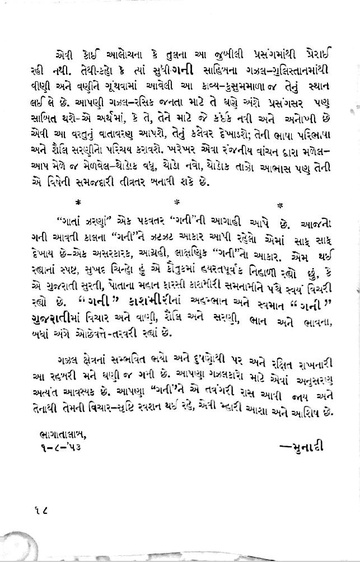 એવી કોઈ આલોચના કે તુલના આ જુબીલી પ્રસંગમાંથી પ્રેરાઈ
રહી નથી. તેથી-કહો કે ત્યાં સુધી-ગની સાહિબના ગઝલ-ગુલિસ્તાનમાંથી
વીણી અને વણીને ગૂંથવામાં આવેલી આ કાવ્ય-કુસુમમાળા જ તેનું સ્થાન
લઈ લે છે. આપણી ગઝલ-રસિક જનતા માટે તે ઘણે અંશે પ્રસંગસર પણ
સાબિત થશે-એ અર્થમાં, કે તે, તેને માટે જે કંઈક નવી અને અનોખી છે
એવી આ વસ્તુનું વાતાવરણ આપશે, તેનું કલેવર દેખાડશે; તેની ભાષા પરિભાષા
અને શૈલિ સરણીનો પરિચય કરાવશે. ખરેખર એવા રંજનીય વાંચન દ્વારા મળેલ-
આપ મેળે જ મેળવેલ-થોડાક વધુ, થોડો નવો, થોડોક તાઝો આભાસ પણ તેની
એ વિષેની સમજદારી તીવ્રતર બનાવી શકે છે.
* * *
"ગાતાં ઝરણાં" એક પકવતર "ગની"ની આગાહી આપે છે. આજનો
ગની આવતી કાલના "ગની"ને ઝટઝટ આકાર આપી રહેલો એમાં સાફ સાફ
દેખાય છે-એક અસરકારક, આગ્રહી, લાક્ષણિક "ગની"નો આકાર. એમ થઈ
રહ્યાનાં સ્પષ્ટ, સુખદ ચિન્હો હું એ કૌતુકમાં હયરતપૂર્વક નિહાળી રહ્યો છું, કે
એ ગુજરાતી સુરતી, પોતાના મહાન ફારસી કાશ્મીરી સમનામીને પંથે સ્વયં વિચરી
રહ્યો છે. "ગની" કાશ્મીરીનાં અહ્મ્ભાન અને સ્વમાન "ગની"
ગુજરાતીમાં વિચાર અને વાણી, શૈલિ અને સરણી, ભાન અને ભાવના,
બધાં અંગે ઓછેવત્તે-તરવરી રહ્યાં છે.
ગઝલ ક્ષેત્રનાં સમ્ભવિત ભયો અને દૂષણોથી પર અને રક્ષિત રાખનારી
આ રહબરી મને ઘણી જ ગમી છે. આપણા ગઝલકારો માટે એવાં અનુસરણ
અત્યંત આવશ્યક છે. આપણા "ગની"ને એ તવંગરી રાસ આવી જાય અને
તેનાથી તેમની વિચાર-સૃષ્ટિ રવશન થઈ રહે, એવી મ્હારી આશા અને આશિષ છે.
ભાગાતાલાવ,
૧-૮-'૫૩ —મુનાદી
૧૮